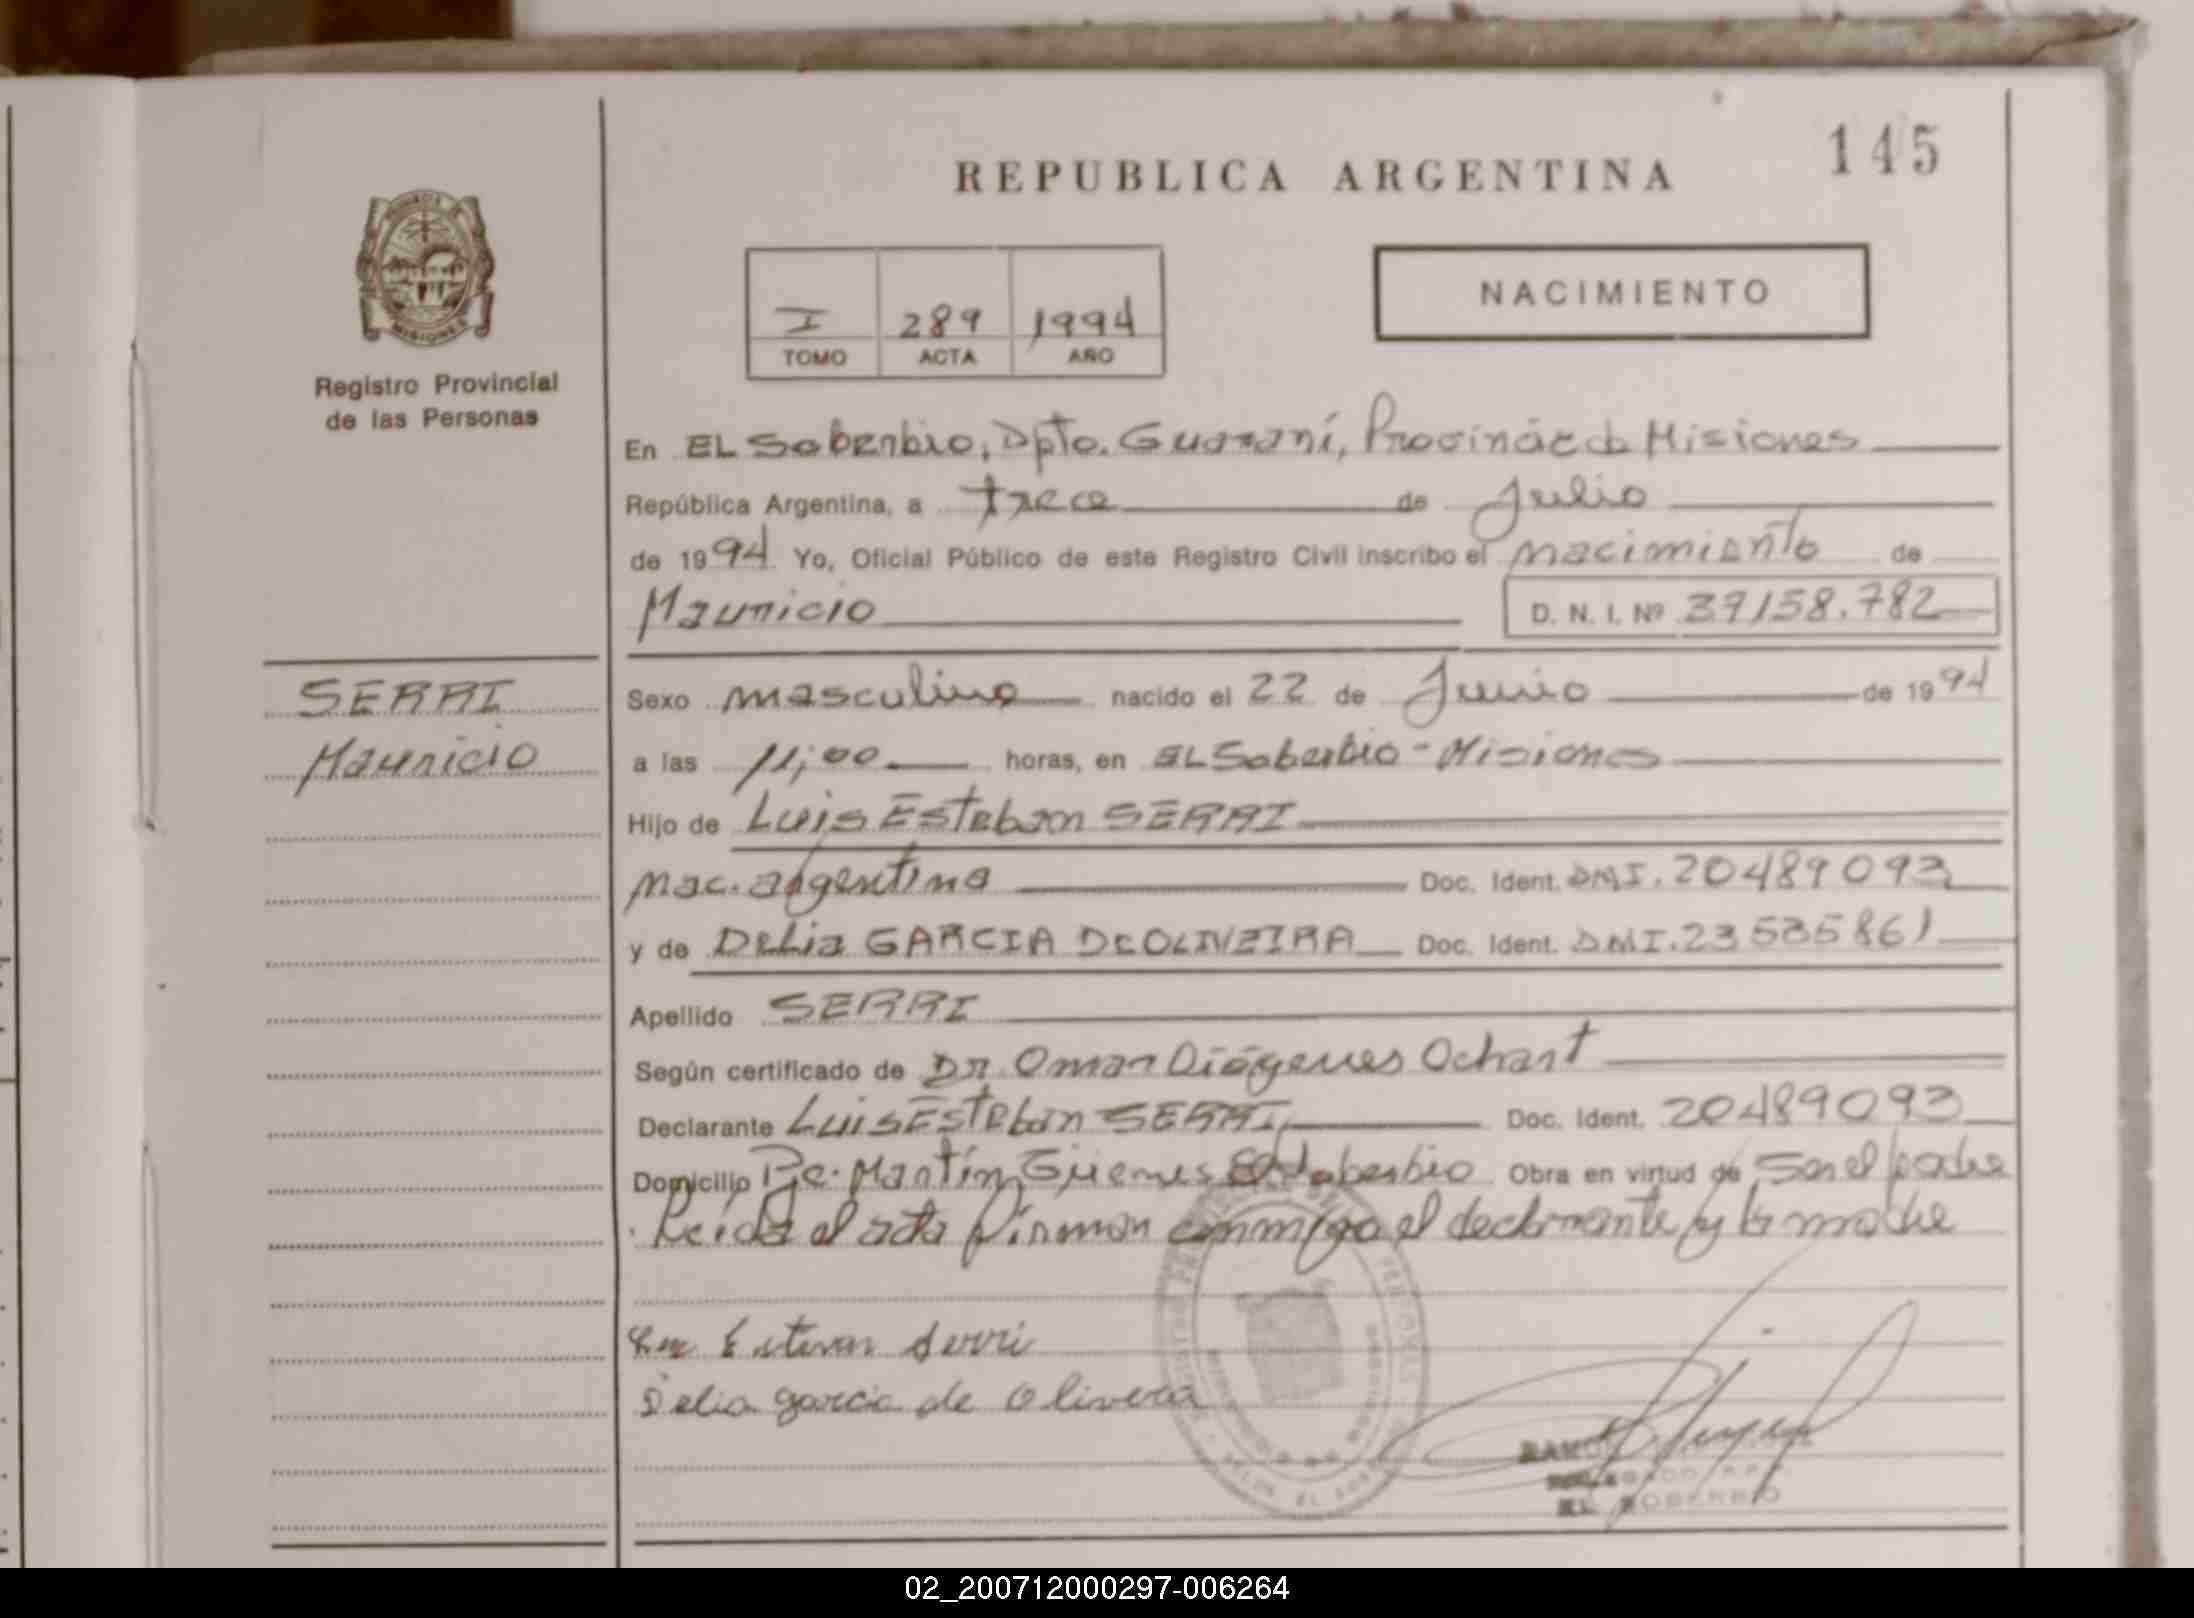 145
REPUBLICA ARGENTINA
MISIONES
Registro Provincial
de las Personas
I 289 1994
TOMO ACTA AÑO
NACIMIENTO
En EL Soberbio, Dpto. Guaraní, Provincia de Misiones
República Argentina, a trece de Julio
de 1994 Yo, Oficial Público de este Registro Civil inscribo el nacimiento de
Mauricio D. N. I. Nº 39158.782
SERRI
Mauricio
Sexo masculino nacido el 22 de Junio de 1994
a las 11;00 horas, en EL Soberbio - Misiones
Hijo de Luis Esteban SERRI
nac. argentina Doc. Ident. DNI. 20489093
y de Delia GARCIA DE OLIVEIRA Doc. Ident. DNI. 23535861
Apellido SERRI
Según certificado de Dr. Omar Diógenes Ochart
Declarante Luis Esteban SERRI Doc. Ident. 20489093
Domicilio Martín Güemes El Soberbio Obra en virtud de Ser el padre
Leída el acta firman conmigo el declarante y la madre
Estevan Serri
Delia garcia de Olivera
EL SOBERBIO
02_200712000297-006264